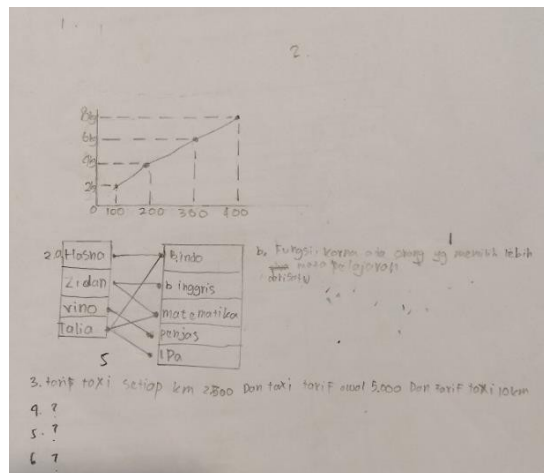 1.
2.
8kg
6kg
4kg
2kg
0 100 200 300 400
2.a Hasna b.indo
Zidan b inggris
vino matematika
Talia penjas
IPa
5
b. Fungsi. karna ada orang yg memilih lebih
mata pelajaran
3. tarif taxi setiap km 2500 Dan taxi tarif awal 5.000 Dan tarif taxi 10km
4. ?
5. ?
6 ?